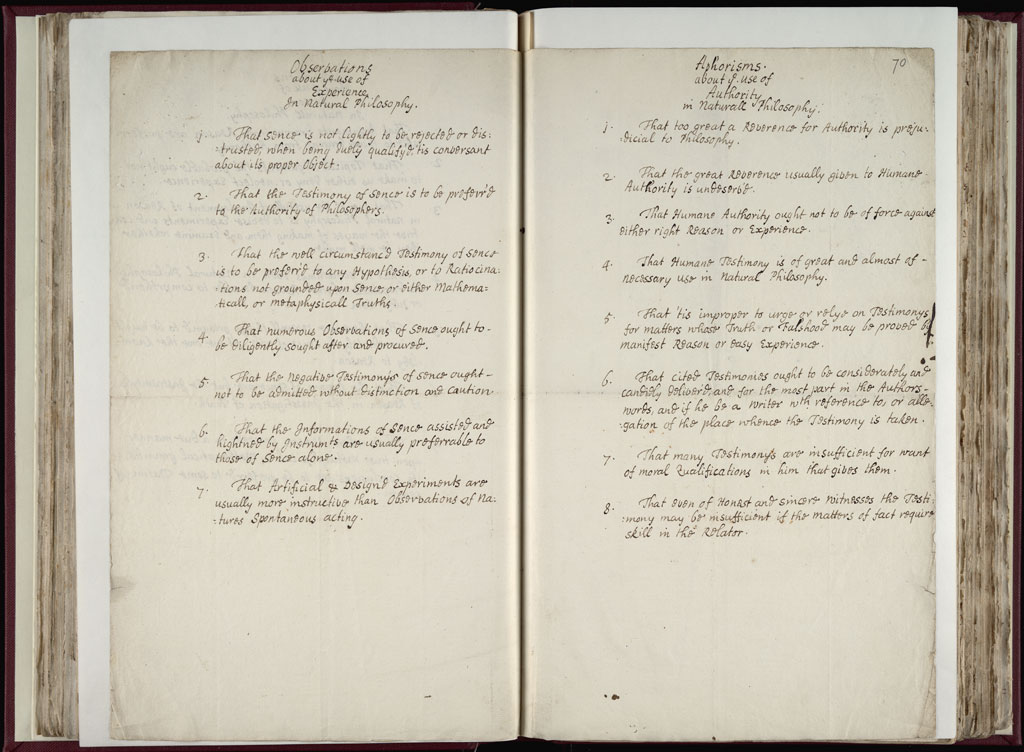 Observations
about ye use of
Experience
In Natural Philosophy.
1. That Sence is not lightly to be rejected or dis-
:trusted, when being duely qualify'd, 'tis conversant
about its proper Object.
2. That the Testimony of Sence is to be preferr'd
to the Authority of Philosophers.
3. That the well circumstanc'd Testimony of Sence
is to be preferr'd to any Hypothesis, or to Ratiocina-
:tions not grounded upon Sence, or either Mathema-
:ticall, or metaphysicall Truths.
4. That numerous Observations of Sence ought to-
be diligently sought after and procured.
5. That the Negative Testimonys of Sence ought-
not to be admitted without distinction and Caution.
6. That the Informations of Sence assisted and
hightned by Instrumts are usually preferrable to
those of Sence alone.
7. That Artificial & Design'd Experiments are
usually more instructive than Observations of Na-
:tures Spontaneous acting.
70
Aphorisms.
about ye. use of
Authority
in Naturall Philosophy.
1. That too great a Reverence for Authority is preju-
:dicial to Philosophy.
2. That the great Reverence usually given to Humane
Authority is undeserv'd.
3. That Humane Authority ought not to be of force against
either right Reason or Experience.
4. That Humane Testimony is of great and almost of-
necessary use in Natural Philosophy.
5. That 'tis improper to urge or relye on Testimonys
for matters whose Truth or Falshood may be proved by
manifest Reason or easy Experience.
6. That cited Testimonies ought to be considerately and
candidly deliver'd, and for the most part in the Authors-
words, and if he be a Writer wth reference to, or alle-
:gation of the place whence the Testimony is taken.
7. That many Testimonys are insufficient for want
of moral Qualifications in him that gives them.
8. That even of Honest and sincere Witnesses the Testi-
:mony may be insufficient if the matters of fact require
skill in the Relator.